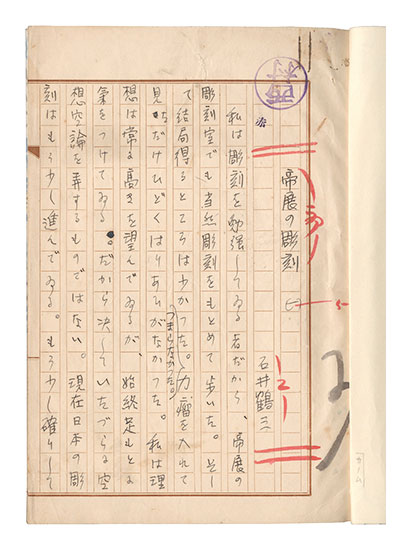 帝展の彫刻 (一)
石井鶴三
私は彫刻を勉強してゐる者だから、帝展の
彫刻室でも当然彫刻をもとめて歩いた。そし
て結局得るところは少かつた。力瘤を入れて
つまらなかつた。
見ただけひどくはりあひがなかつた。私は理
想は常に高きを望んでゐるが、始終足もとに
気をつけてゐる。だから決していたづらに空
想空論を弄するものではない。現在日本の彫
刻はもう少し進んでゐる。もう少し確りして